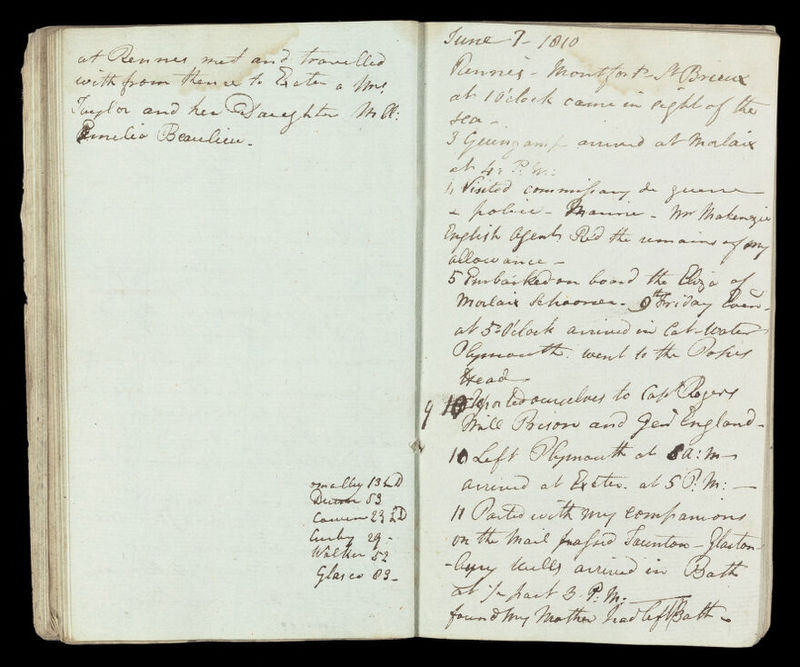 at Rennes met and travelled
with from thence to Exeter a Mrs
Taylor and her Daughter Mlle:
Emelia Beaulieu.
omalley 13 LD
Durom 53
Cowen 23 LD
Curby 29 -
Walker 52
Glasco 83 -
June 7 - 1810
Rennes - Montfort - St Brieux
at 1 O'clock came in sight of the
sea -
3 Guingamp arrived at Morlaix
at 4: P.M:
4 Visited commissary de guerre
& police - Mairie - Mr Makenzie
English Agents Red the remains of my
allowance -
5 Embarked on board the Eliza of
Morlaix Schooner. 9th Friday Even -
at 5 O'clock arrived in Cat-Water
Plymouth. went to the Popes
Head
9 10 Reported ourselves to Capt Rogers
Mill Prison and Genl England -
10 Left Plymouth at 6 A:M -
arrived at Exeter. at 5 P.M: -
11 Parted with my companions
on the Mail passed Taunton - Glaston
-bury Wells arrived in Bath
at 1/2 past 3. P.M. -
found my Mother had left Bath -